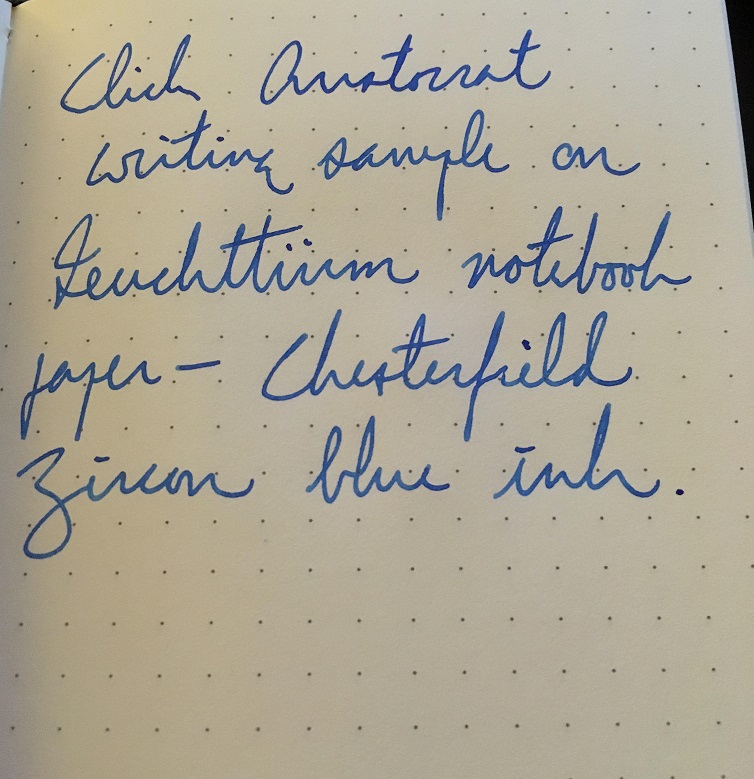 Click Aristocrat
writing sample on
Leuchtturm notebook
paper — Chesterfield
Zircon blue ink.